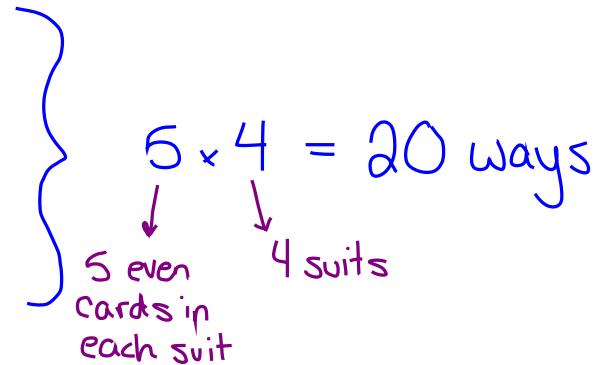 5 × 4 = 20 ways
5 even
cards in
each suit
4 suits